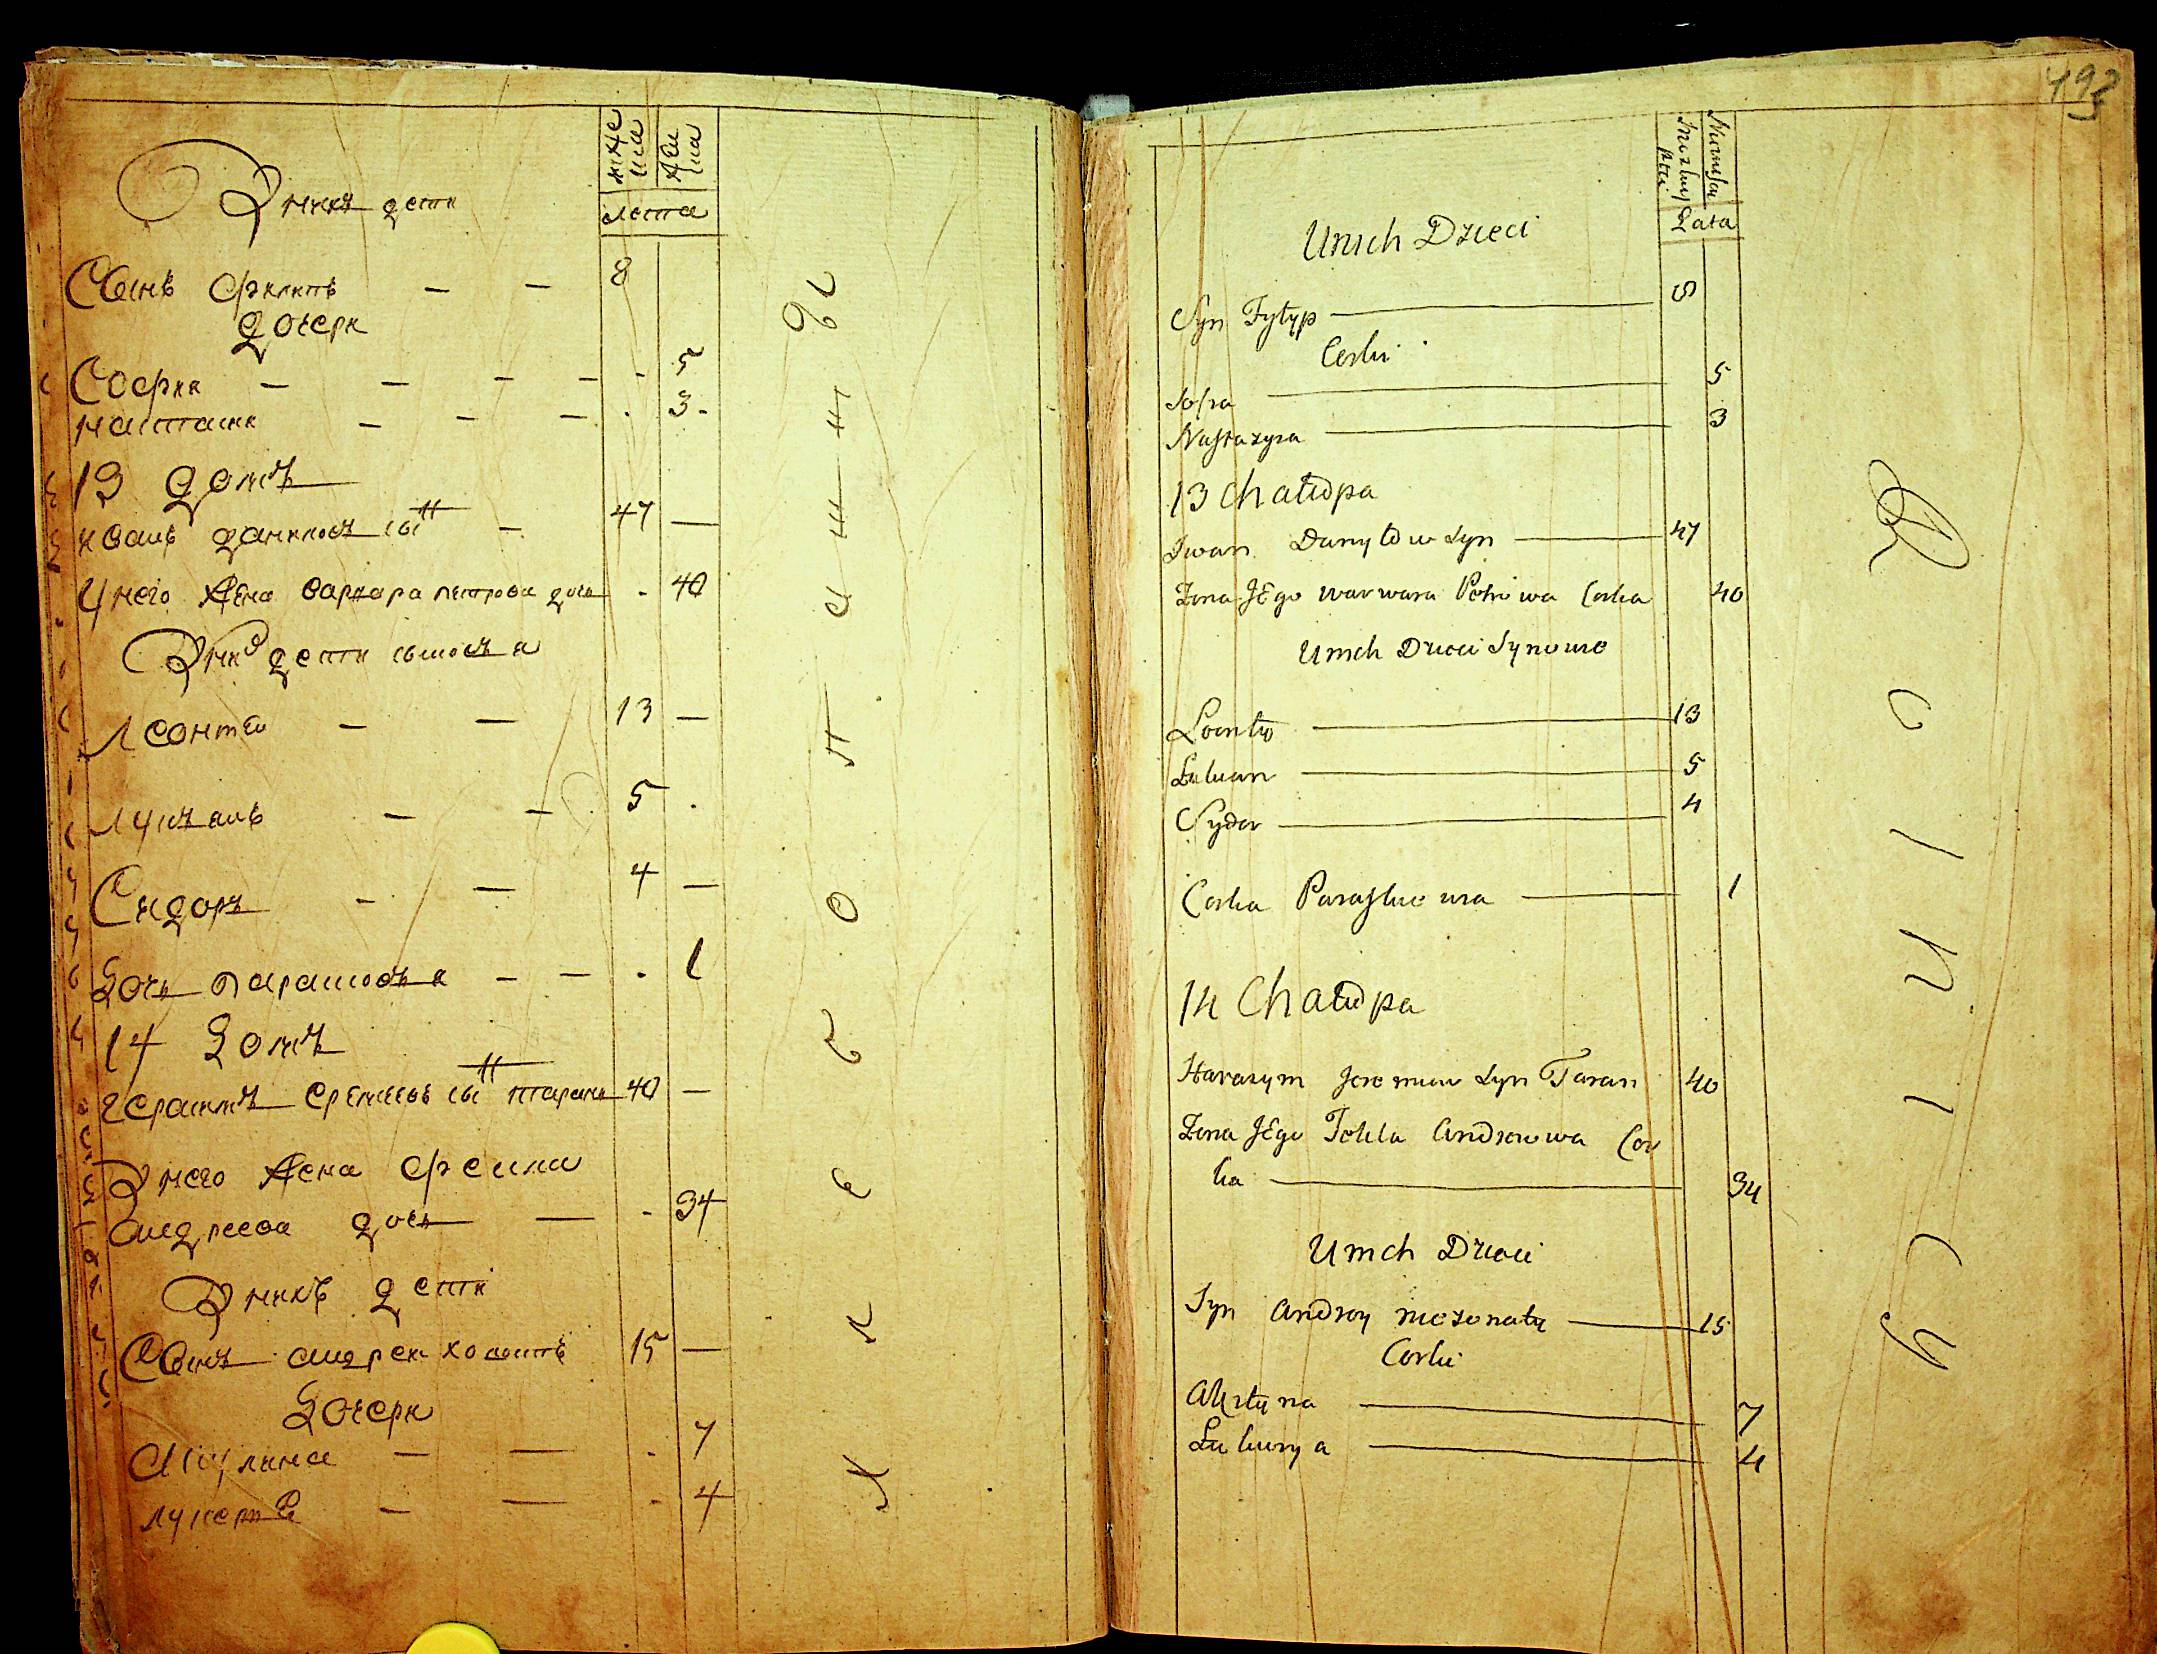 мужеска
женска
лета
У нихъ дети
Сынъ Филипъ — — 8
Дочери
София — — — — . 5
настасия — — — . 3
13 домъ
иванъ даниловъ сынъ — 47 —
У него жена варвара петрова дочь . 40
У них дети сыновъя
Леонтей — — 13 —
Лукъянъ — — 5 .
Сидоръ — — 4 —
Дочь парасковъя — — . 1
14 Домъ
герасимъ еремеевъ сынъ таранъ 40 —
У него жена фекла
андреева дочь — . 34
У нихъ дети
Сынъ андреи холостъ 15 —
Дочери
Акулина — — . 7
лукеръя — — . 4
193
Lata
Unich Dzieci
Syn Fyłyp — 8
Corki
Sofia — 5
Nastazyia — 3
13 Chałupa
Iwan Danyłow Syn — 47
Zona JEgo warwara Petrowa Corka 40
Unich Dzieci Synowie
Leonty — 13
Lukian — 5
Sydor — 4
Corka Paraskiewia — 1
14 Chałupa
Harasym Jeremiew Syn Taran 40
Zona JEgo Tekla Andreiowa Cor
ka — 34
Unich Dzieci
Syn Andrey niezonaty — 15
Corki
Akulyna — 7
Lukerya — 4